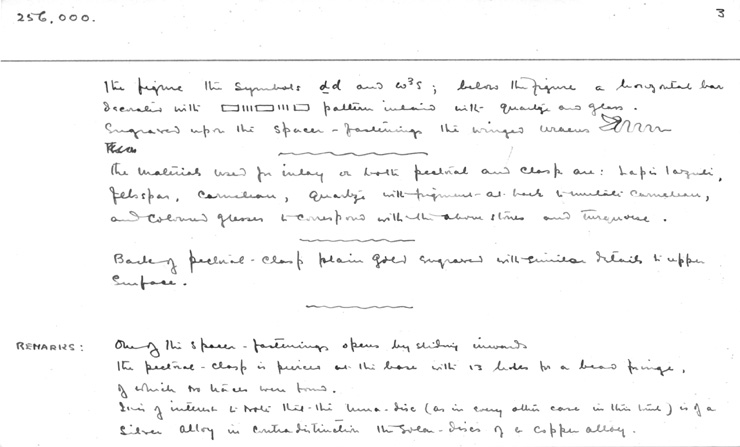 256,000.
3
the figure the symbols dd and w3s ; below the figure a horizontal bar
decorated with pattern inlaid with quartz and glass.
Engraved upon the spacer-fastenings the winged uraeus
The materials used for inlay on both pectoral and clasp are: Lapis lazuli,
felspar, carnelian, quartz with pigment at back to imitate carnelian,
and coloured glasses to correspond with the above stones and turquoise.
Back of pectoral-clasp plain gold engraved with similar details to upper
surface.
REMARKS: One of the spacer-fastenings opens by sliding inwards
The pectoral-clasp is pierced at the base with 13 holes for a bead fringe,
of which no traces were found.
It is of interest to note that the luna-disc (as in every other case in this tomb) is of a
silver alloy in contradistinction the solar-discs of a copper alloy.